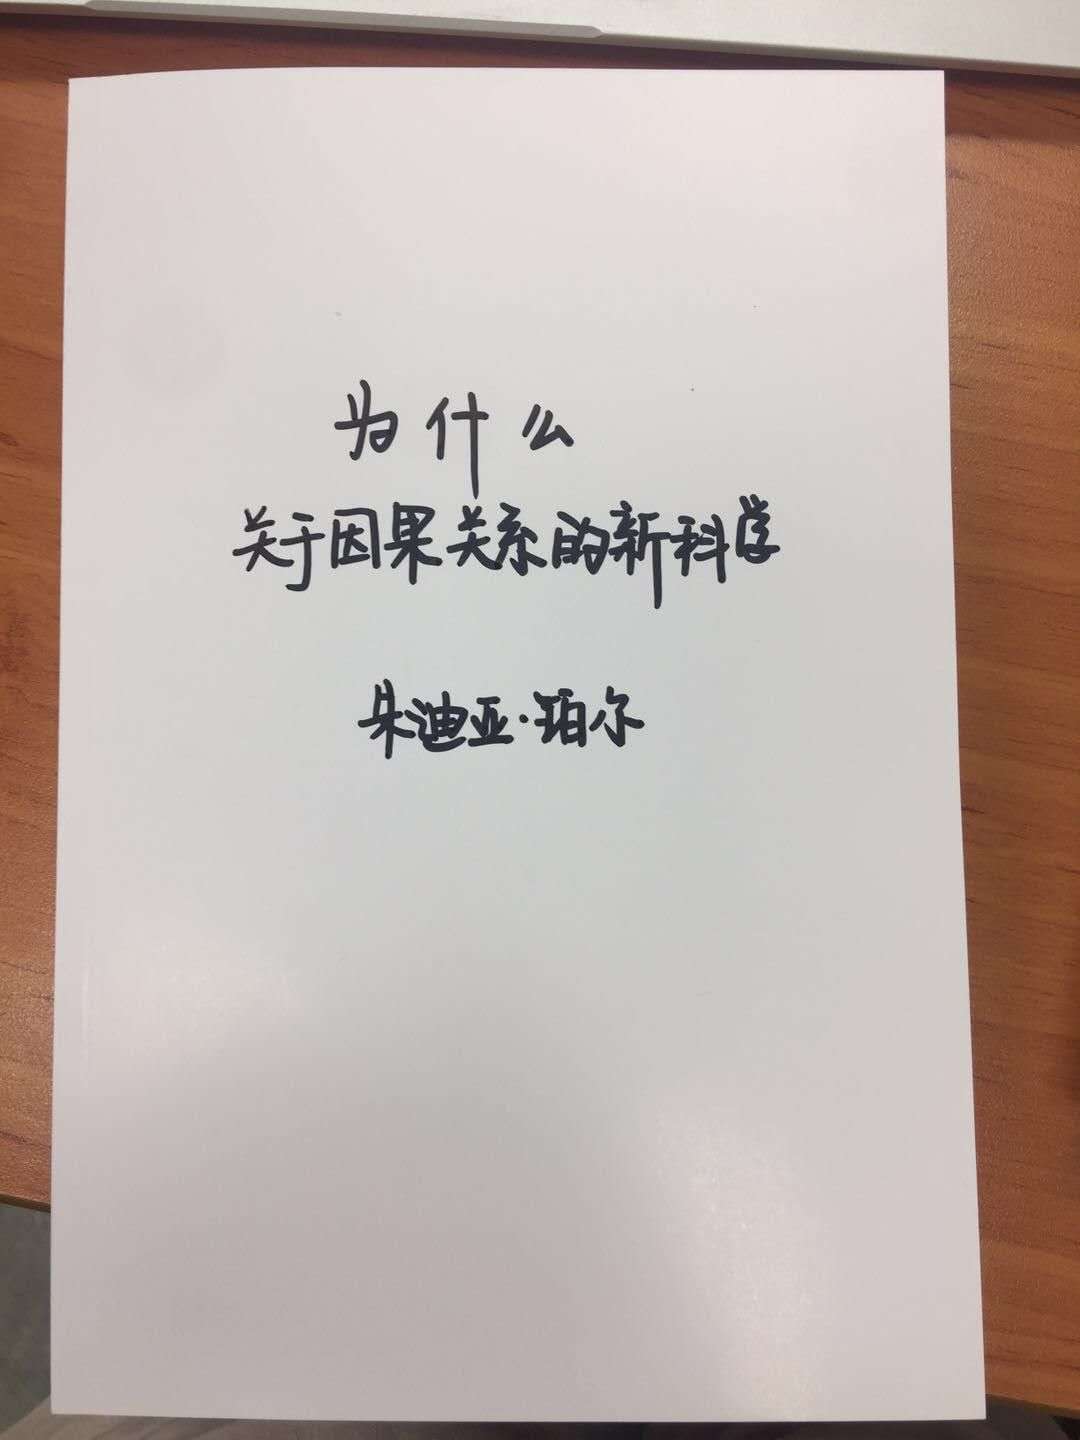 为什么
关于因果关系的新科学
朱迪亚·珀尔